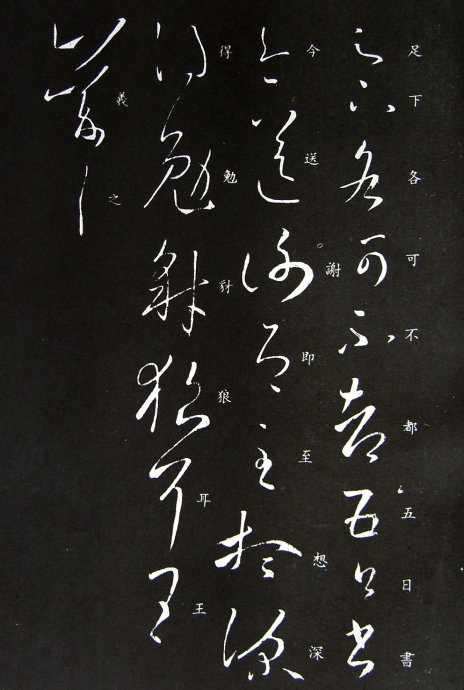 足下各可不都五日書
今送謝即至想深
得勉豺狼耳王
羲之